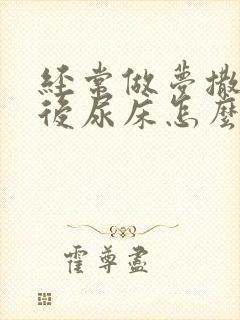 經常做夢撒
後尿床怎麼
霍尊盡